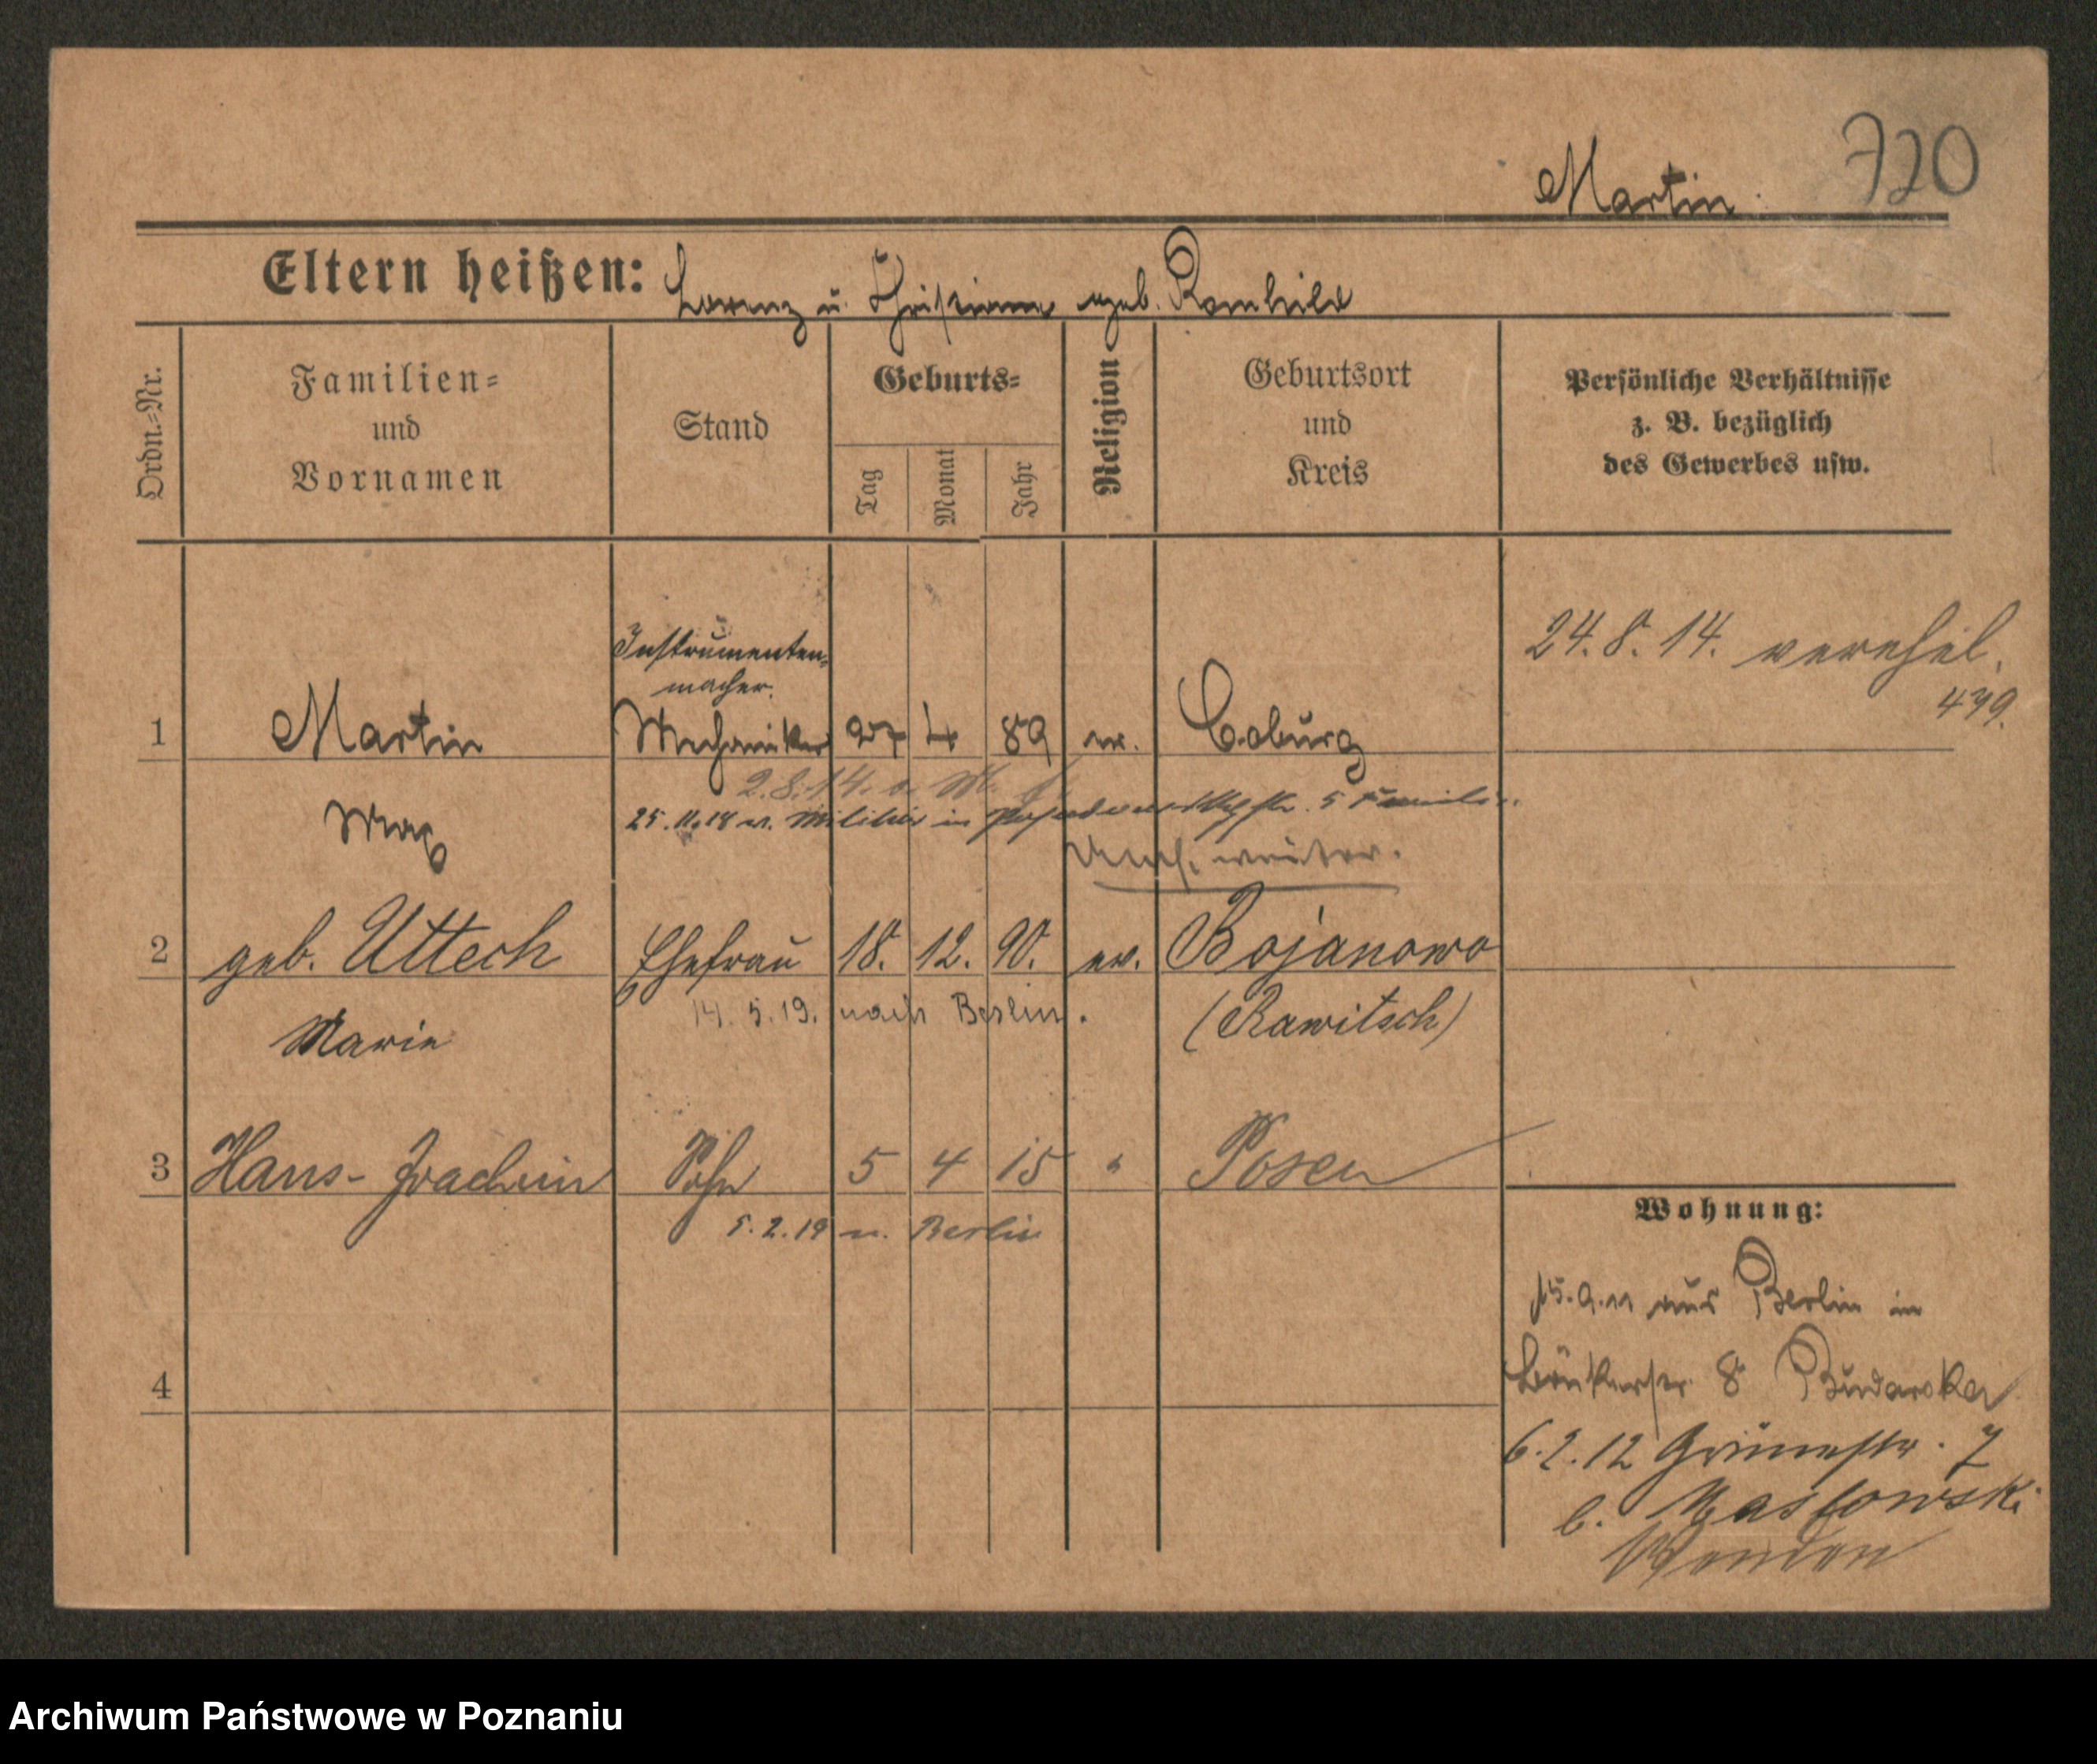 720
Martin.
Eltern heißen: Lorenz u. Christiane geb. Romhild
Ordn.-Nr.
Familien-
und
Vornamen
Stand
Geburts-
Tag
Monat
Jahr
Religion
Geburtsort
und
Kreis
Persönliche Verhältnisse
z. B. bezüglich
des Gewerbes usw.
24. 8. 14. verehel.
439.
Instrumenten-
macher.
1 Martin Mechaniker 27 4 89 ev. Coburg
2.8.14. z. M.
25.11.18 v. Militär in 5 Familie.
Max
weiter.
2 geb. Uttech Ehefrau 18. 12. 90. ev. Bojanowo
14. 5. 19. nach Berlin.
Marie
(Rawitsch)
3 Hans-Joachim Sohn 5 4 15 " Posen
5. 2. 19 n. Berlin
4
Wohnung:
15.9.11 aus Berlin in
8
6.2.12 7
b. Masłowski